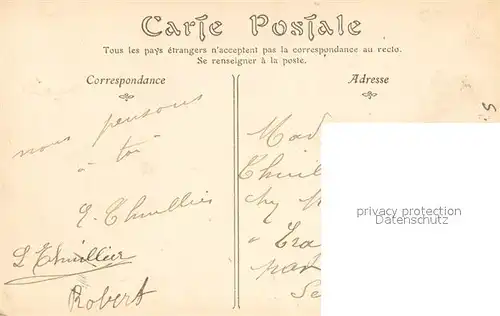 Carte Postale
Tous les pays étrangers n'acceptent pas la correspondance au recto.
Se renseigner à la poste.
Correspondance
Adresse
nous pensons
à toi
E. Thuillier
L Thuillier
Robert
Mad
Thuil
chez M
à Tra
par
Se
privacy protection
Datenschutz
5